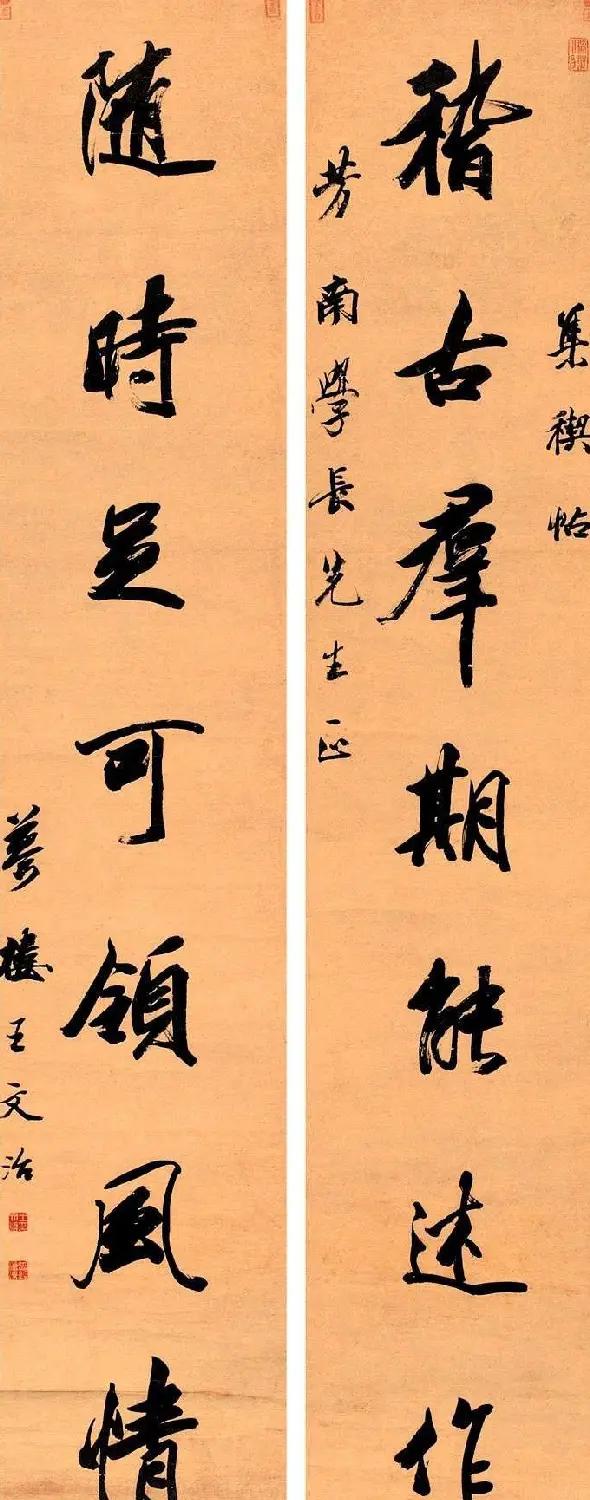 集稧帖
稽古羣期能述作
芳南學長先生正
随時足可領風情
夢樓王文治